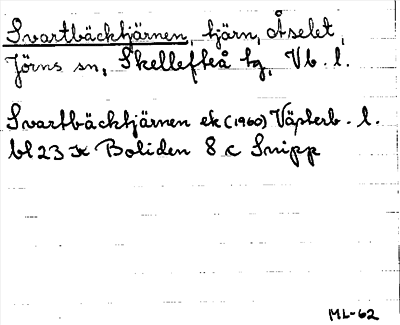 Svartbäcktjärnen, tjärn, Åselet,
Jörns sn, Skellefteå tg, Vb. l.
Svartbäcktjärnen ek (1960) Västerb. l.
bl 23 K Boliden 8 c Snipp
ML-62